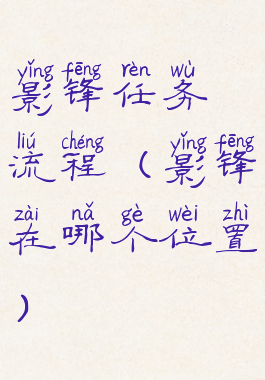 yǐng fēng rèn wù
影锋任务
liú chéng yǐng fēng
流程（影锋
zài nǎ gè wèi zhì
在哪个位置
）